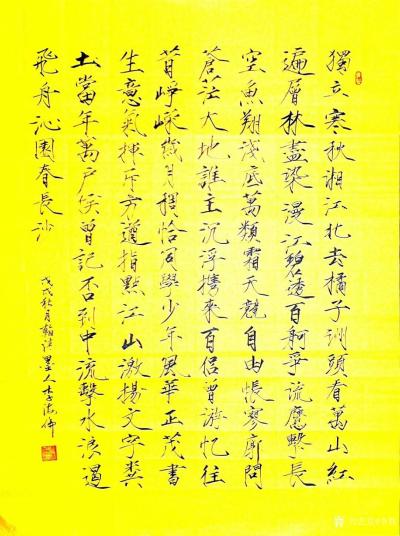 獨立寒秋湘江北去橘子洲頭看萬山紅
遍層林盡染漫江碧透百舸爭流鷹擊長
空魚翔淺底萬類霜天競自由悵寥廓問
蒼茫大地誰主沉浮攜來百侶曾游憶往
昔崢嶸歲月稠恰同學少年風華正茂書
生意氣揮斥方遒指點江山激揚文字糞
土當年萬戶侯曾記否到中流擊水浪遏
飛舟沁園春長沙
戊戌秋月翰墨人李